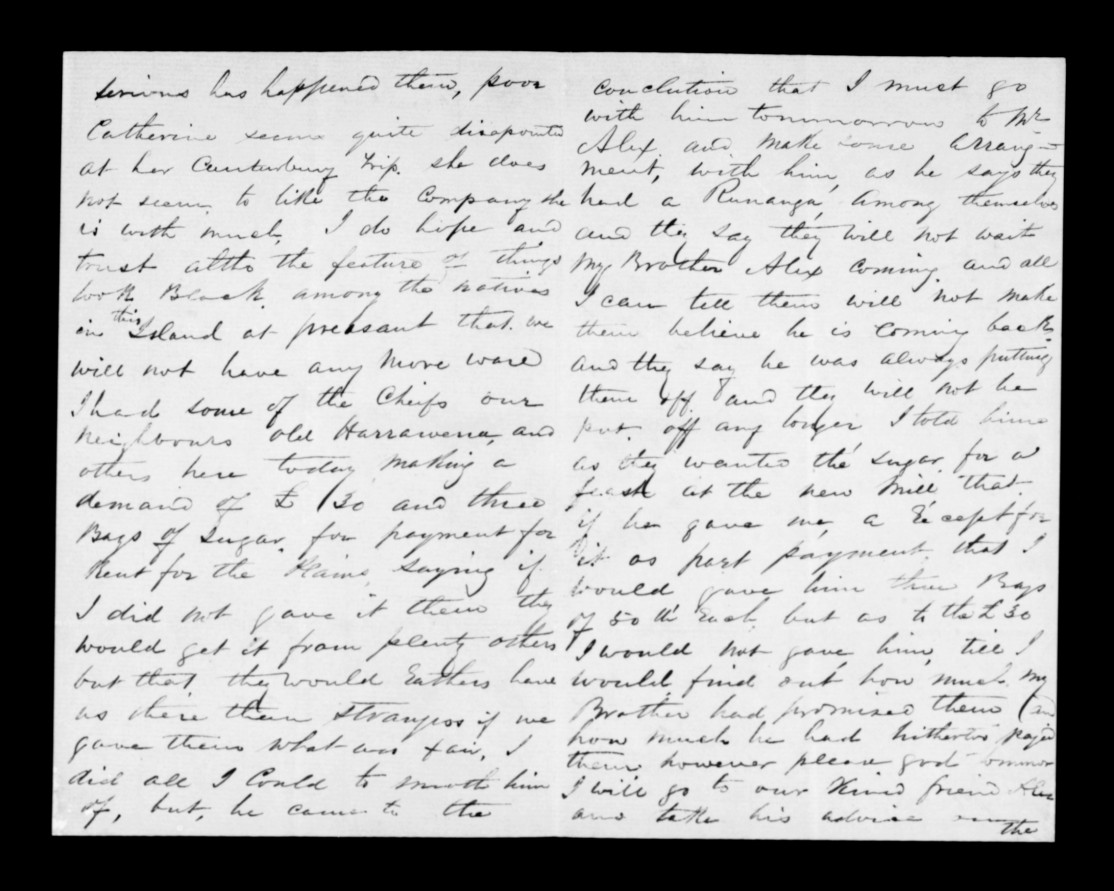 serious has happened them, poor
Catherine seems quite disapointed
at her Canterbury trip. she does
not seem to like the Company she
is with much, I do hope and
trust altho the feature of things
look Black among the natives
in this Island at preasant that we
will not have any more ware
I had some of the Cheifs our
neighbours old Harrawena, and
others here today making a
demand of £130 and three
Bags of Sugar, for payment for
Rent for the Plains, saying if
I did not gave it them they
would get it from plenty others
but that they would Eathers have
us there than strangers if we
gave them what was fair, I
did all I Could to smoth him
of, but, he came to the
conclution that I must go
with him tommorrow to Mr
Alex and make some arrang-
ment, with him, as he says they
had a Runanga, among themselves
and they say they will not wait
My Brother Alex coming and all
I can tell them will not make
them believe he is coming back
and they say he was always putting
them off and they will not be
put off any longer I told him
as they wanted the sugar for a
feast at the new Mill that
if he gave me a Recept for
it as part payment, that I
would gave him three Bags
of 50 lb Each but as to the £30
I would not gave him, till I
would find out how much my
Brother had promised them (and
how much he had hitherto payed
them however please god tommor
I will go to our Kind friend Alex
and take his advise on the